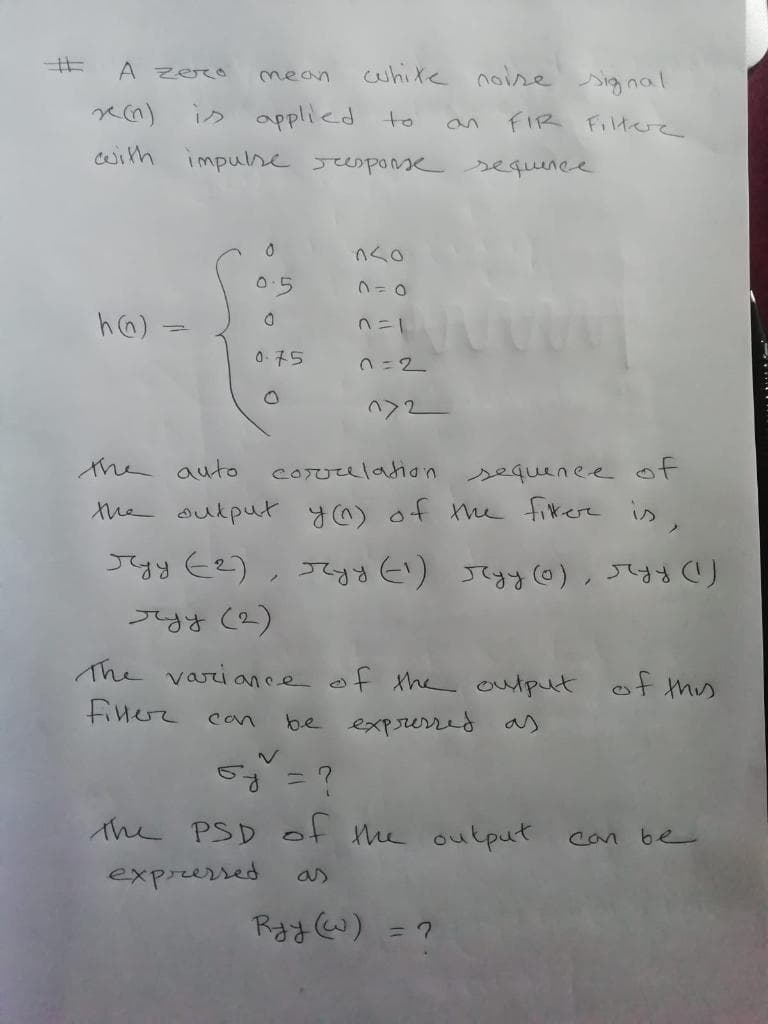 # A zero mean white noise signal
x(n) is applied to an FIR Filter
with impulse response sequence
0 n<0
0.5 n=0
h(n) = { 0 n=1
0.75 n=2
0 n>2
The auto correlation sequence of
the output y(n) of the filter is,
ryy(-2), ryy(-1) ryy(0), ryy(1)
ryy(2)
The variance of the output of this
filter can be expressed as
σy² = ?
The PSD of the output can be
expressed as
Ryy(ω) = ?